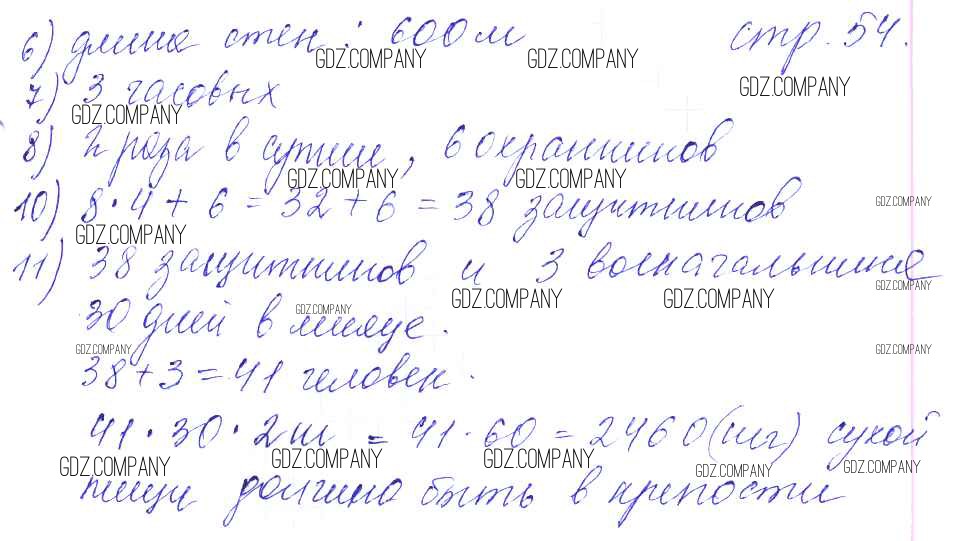 6) длина стен : 600 м стр. 54.
GDZ.COMPANY GDZ.COMPANY GDZ.COMPANY
7) 3 часовых
GDZ.COMPANY
8) 2 раза в сутки, 6 охранников
GDZ.COMPANY GDZ.COMPANY
10) 8 · 4 + 6 = 32 + 6 = 38 защитников
GDZ.COMPANY GDZ.COMPANY
11) 38 защитников и 3 военачальника
GDZ.COMPANY GDZ.COMPANY GDZ.COMPANY
30 дней в месяце.
GDZ.COMPANY GDZ.COMPANY GDZ.COMPANY
38 + 3 = 41 человек.
41 · 30 · 2 = 41 · 60 = 2460 (кг) сухой
GDZ.COMPANY GDZ.COMPANY GDZ.COMPANY GDZ.COMPANY GDZ.COMPANY
пищи должно быть в крепости